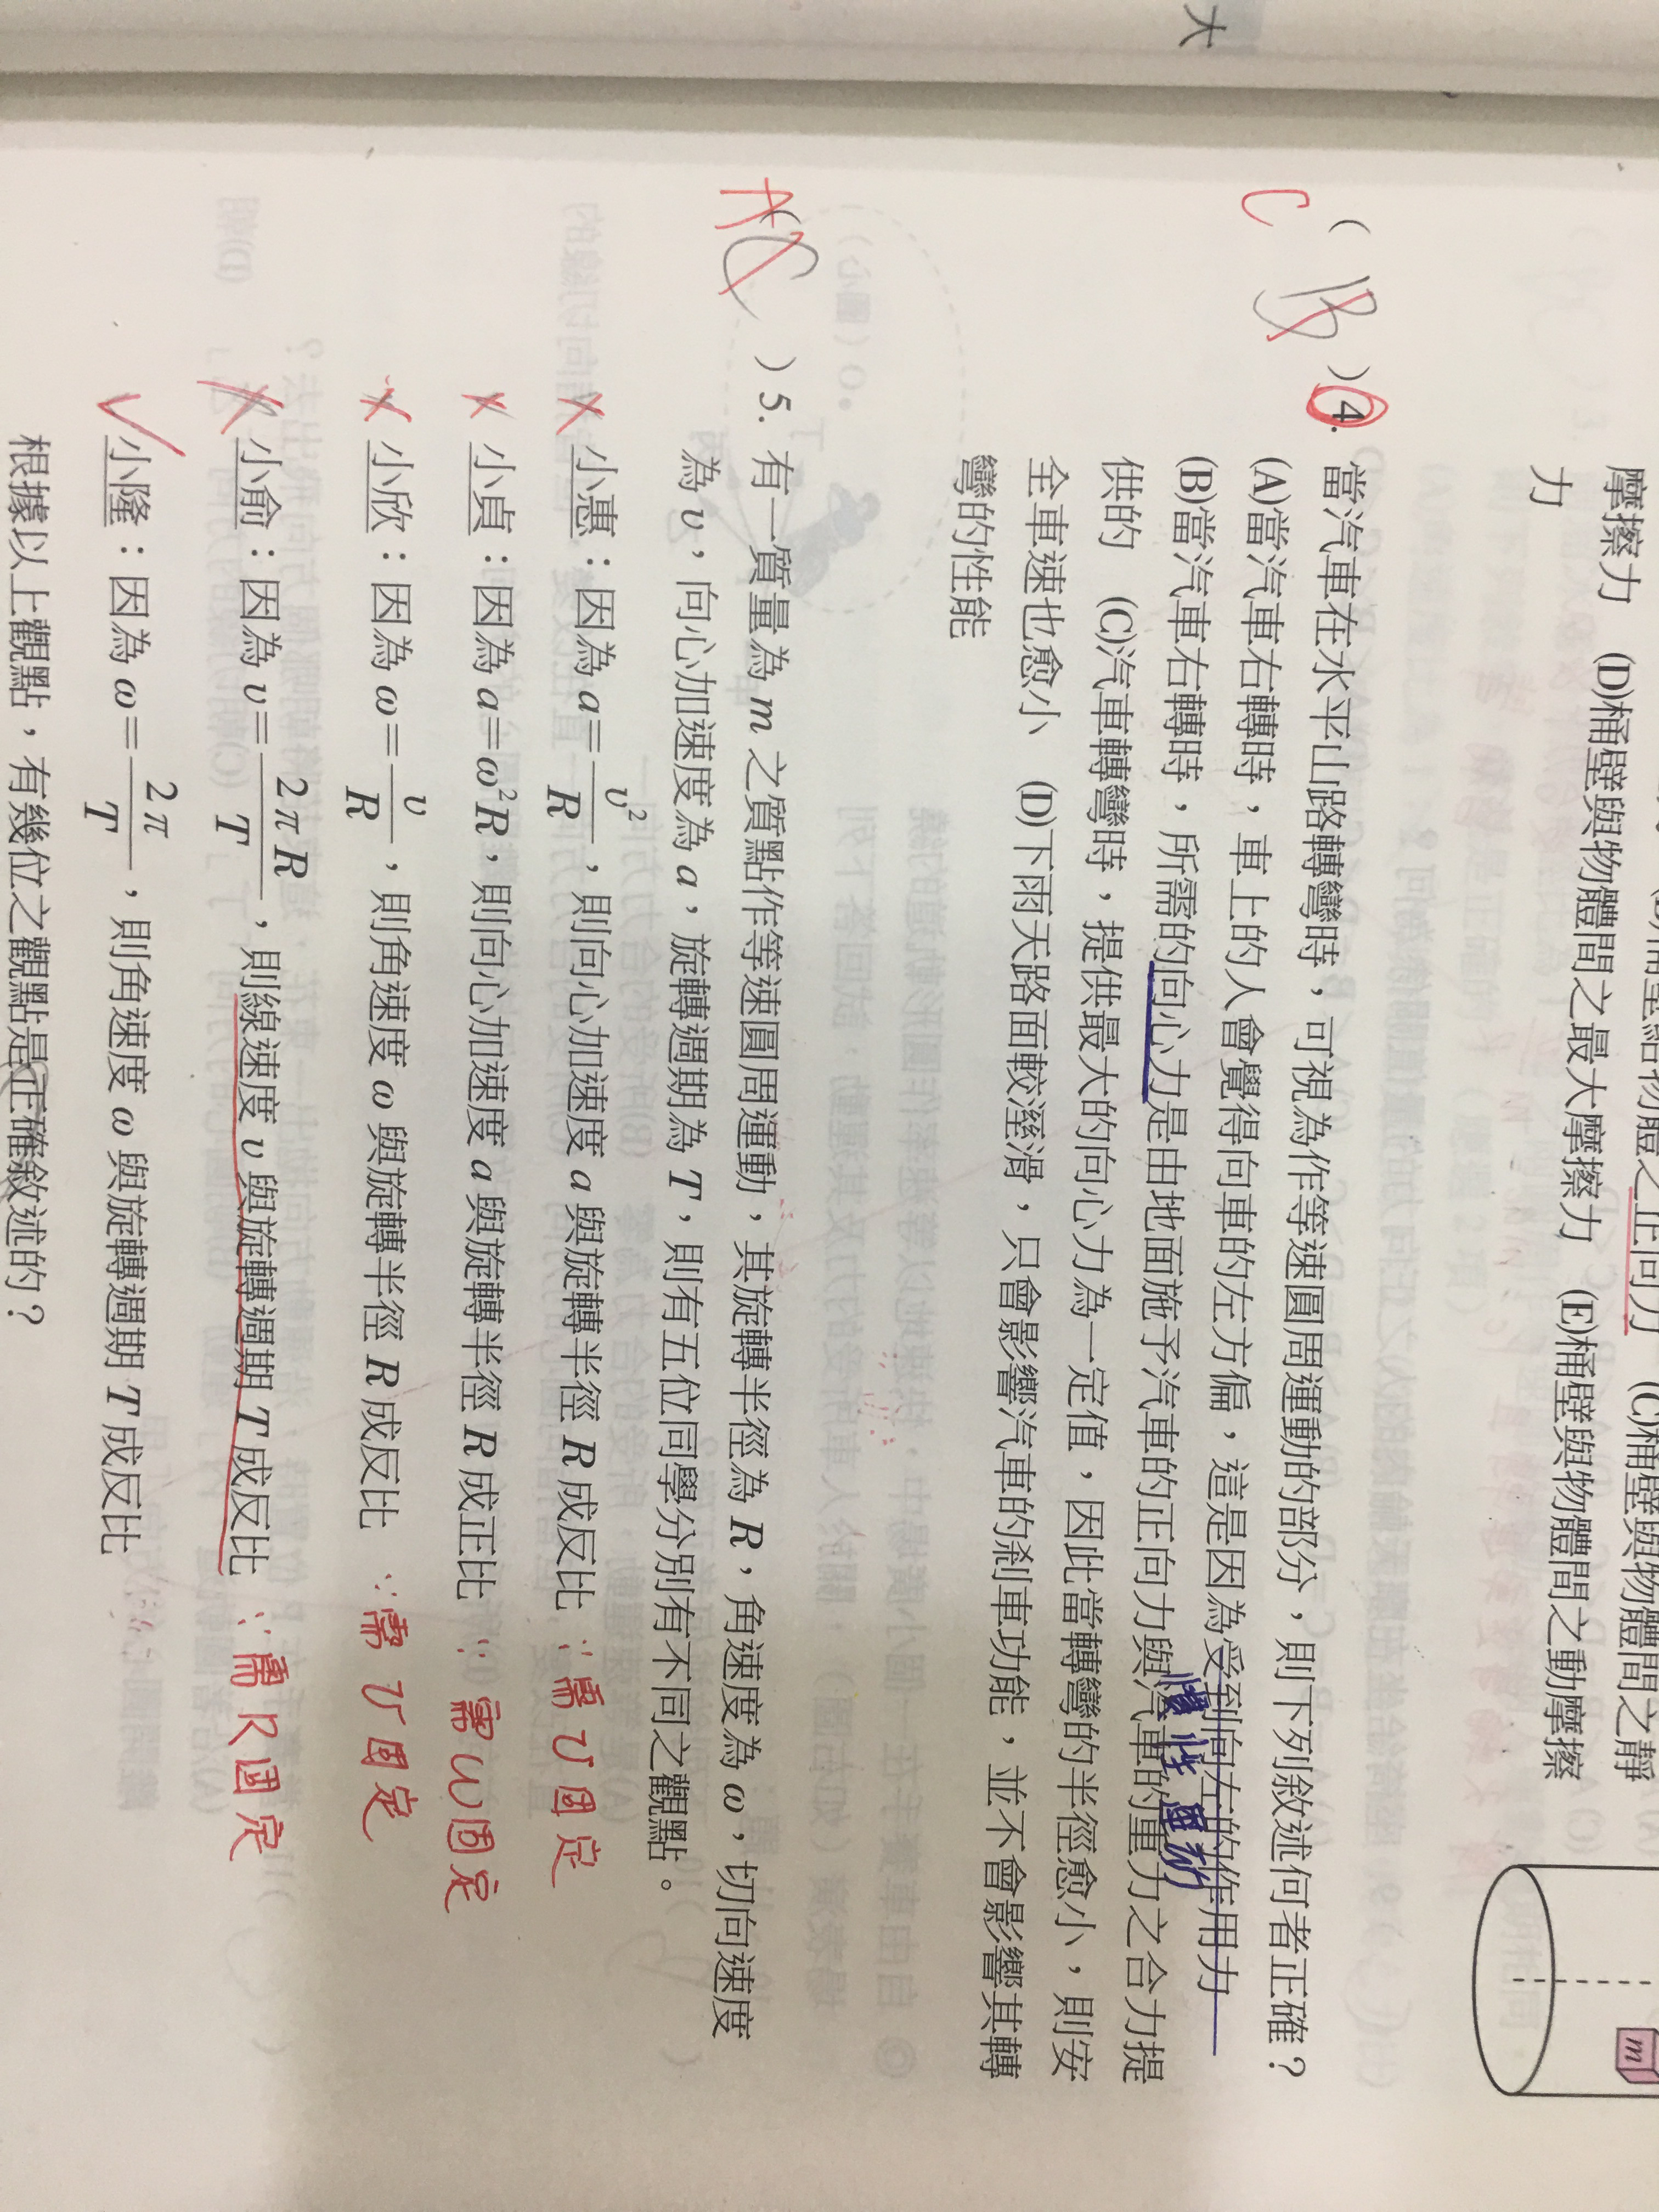 大
摩擦力 (D)桶壁與物體間之最大摩擦力 (E)桶壁與物體間之動摩擦
力
m
C
( B )4. 當汽車在水平山路轉彎時，可視為作等速圓周運動的部分，則下列敘述何者正確？
(A)當汽車右轉時，車上的人會覺得向車的左方偏，這是因為受到向左的作用力
慣性
(B)當汽車右轉時，所需的向心力是由地面施予汽車的正向力與汽車的重力之合力提
供的 (C)汽車轉彎時，提供最大的向心力為一定值，因此當轉彎的半徑愈小，則安
全車速也愈小 (D)下雨天路面較溼滑，只會影響汽車的剎車功能，並不會影響其轉
彎的性能
A
( C )5. 有一質量為 m 之質點作等速圓周運動，其旋轉半徑為 R，角速度為 ω，切向速度
為 v，向心加速度為 a，旋轉週期為 T，則有五位同學分別有不同之觀點。
小惠：因為 a=v²/R，則向心加速度 a 與旋轉半徑 R 成反比 ∵需v固定
小貞：因為 a=ω²R，則向心加速度 a 與旋轉半徑 R 成正比 ∵需ω固定
小欣：因為 ω=v/R，則角速度 ω 與旋轉半徑 R 成反比 ∵需v固定
小俞：因為 v=2πR/T，則線速度 v 與旋轉週期 T 成反比 ∵需R固定
小隆：因為 ω=2π/T，則角速度 ω 與旋轉週期 T 成反比
根據以上觀點，有幾位之觀點是正確敘述的？